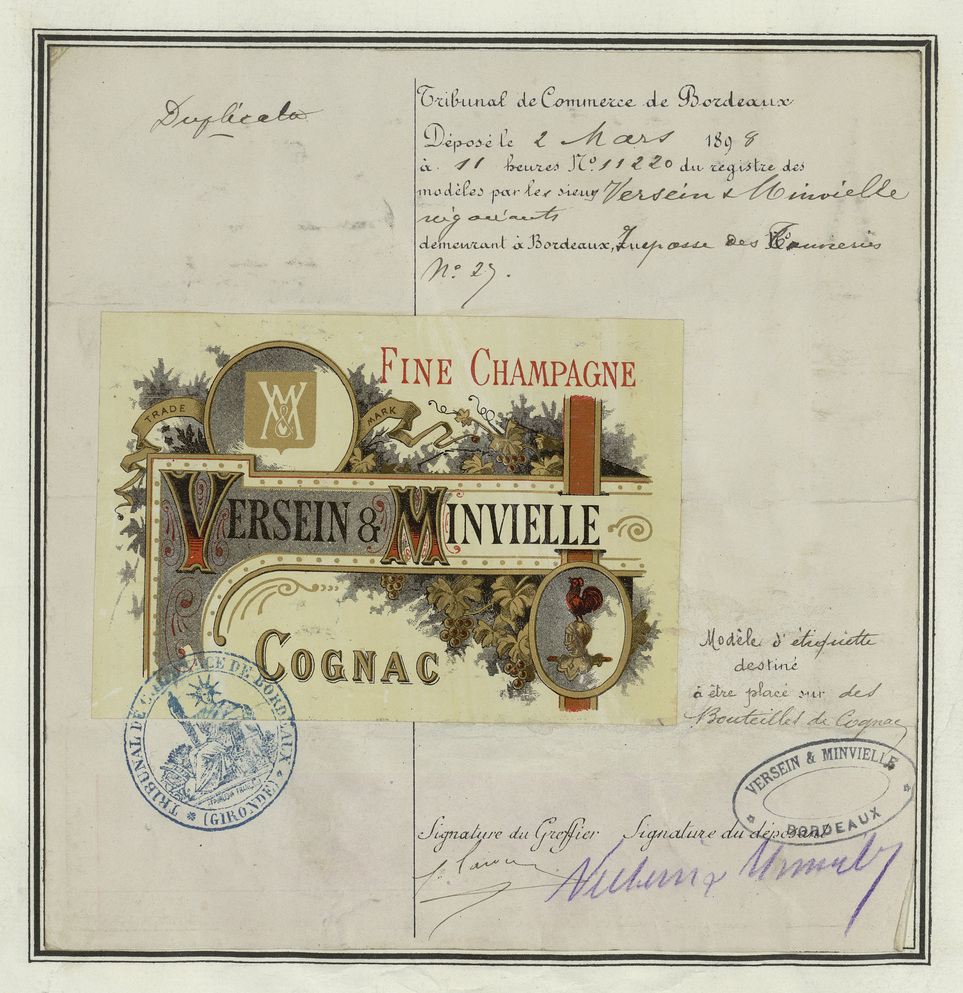 Duplicata
Tribunal de Commerce de Bordeaux
Déposé le 2 Mars 1898
à 11 heures No. 11220 du registre des
modèles par les sieurs Versein & Minvielle
négociants
demeurant à Bordeaux, Impasse des Tanneries
No. 27.
FINE CHAMPAGNE
VM&
TRADE MARK
VERSEIN & MINVIELLE
COGNAC
Modèle d'étiquette
destiné
à être placé sur des
Bouteilles de Cognac
TRIBUNAL DE COMMERCE DE BORDEAUX
(GIRONDE)
VERSEIN & MINVIELLE
BORDEAUX
Signature du Greffier Signature du déposant
Versein & Minvielle